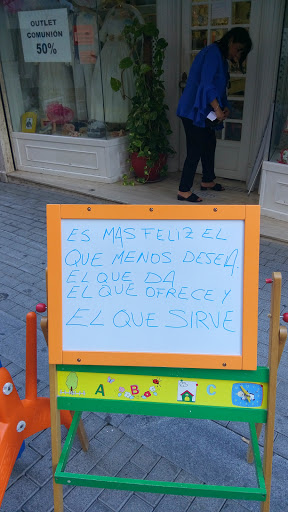 OUTLET
COMUNION
50%
ES MAS FELIZ EL
QUE MENOS DESEA,
EL QUE DA
EL QUE OFRECE Y
EL QUE SIRVE
A B C